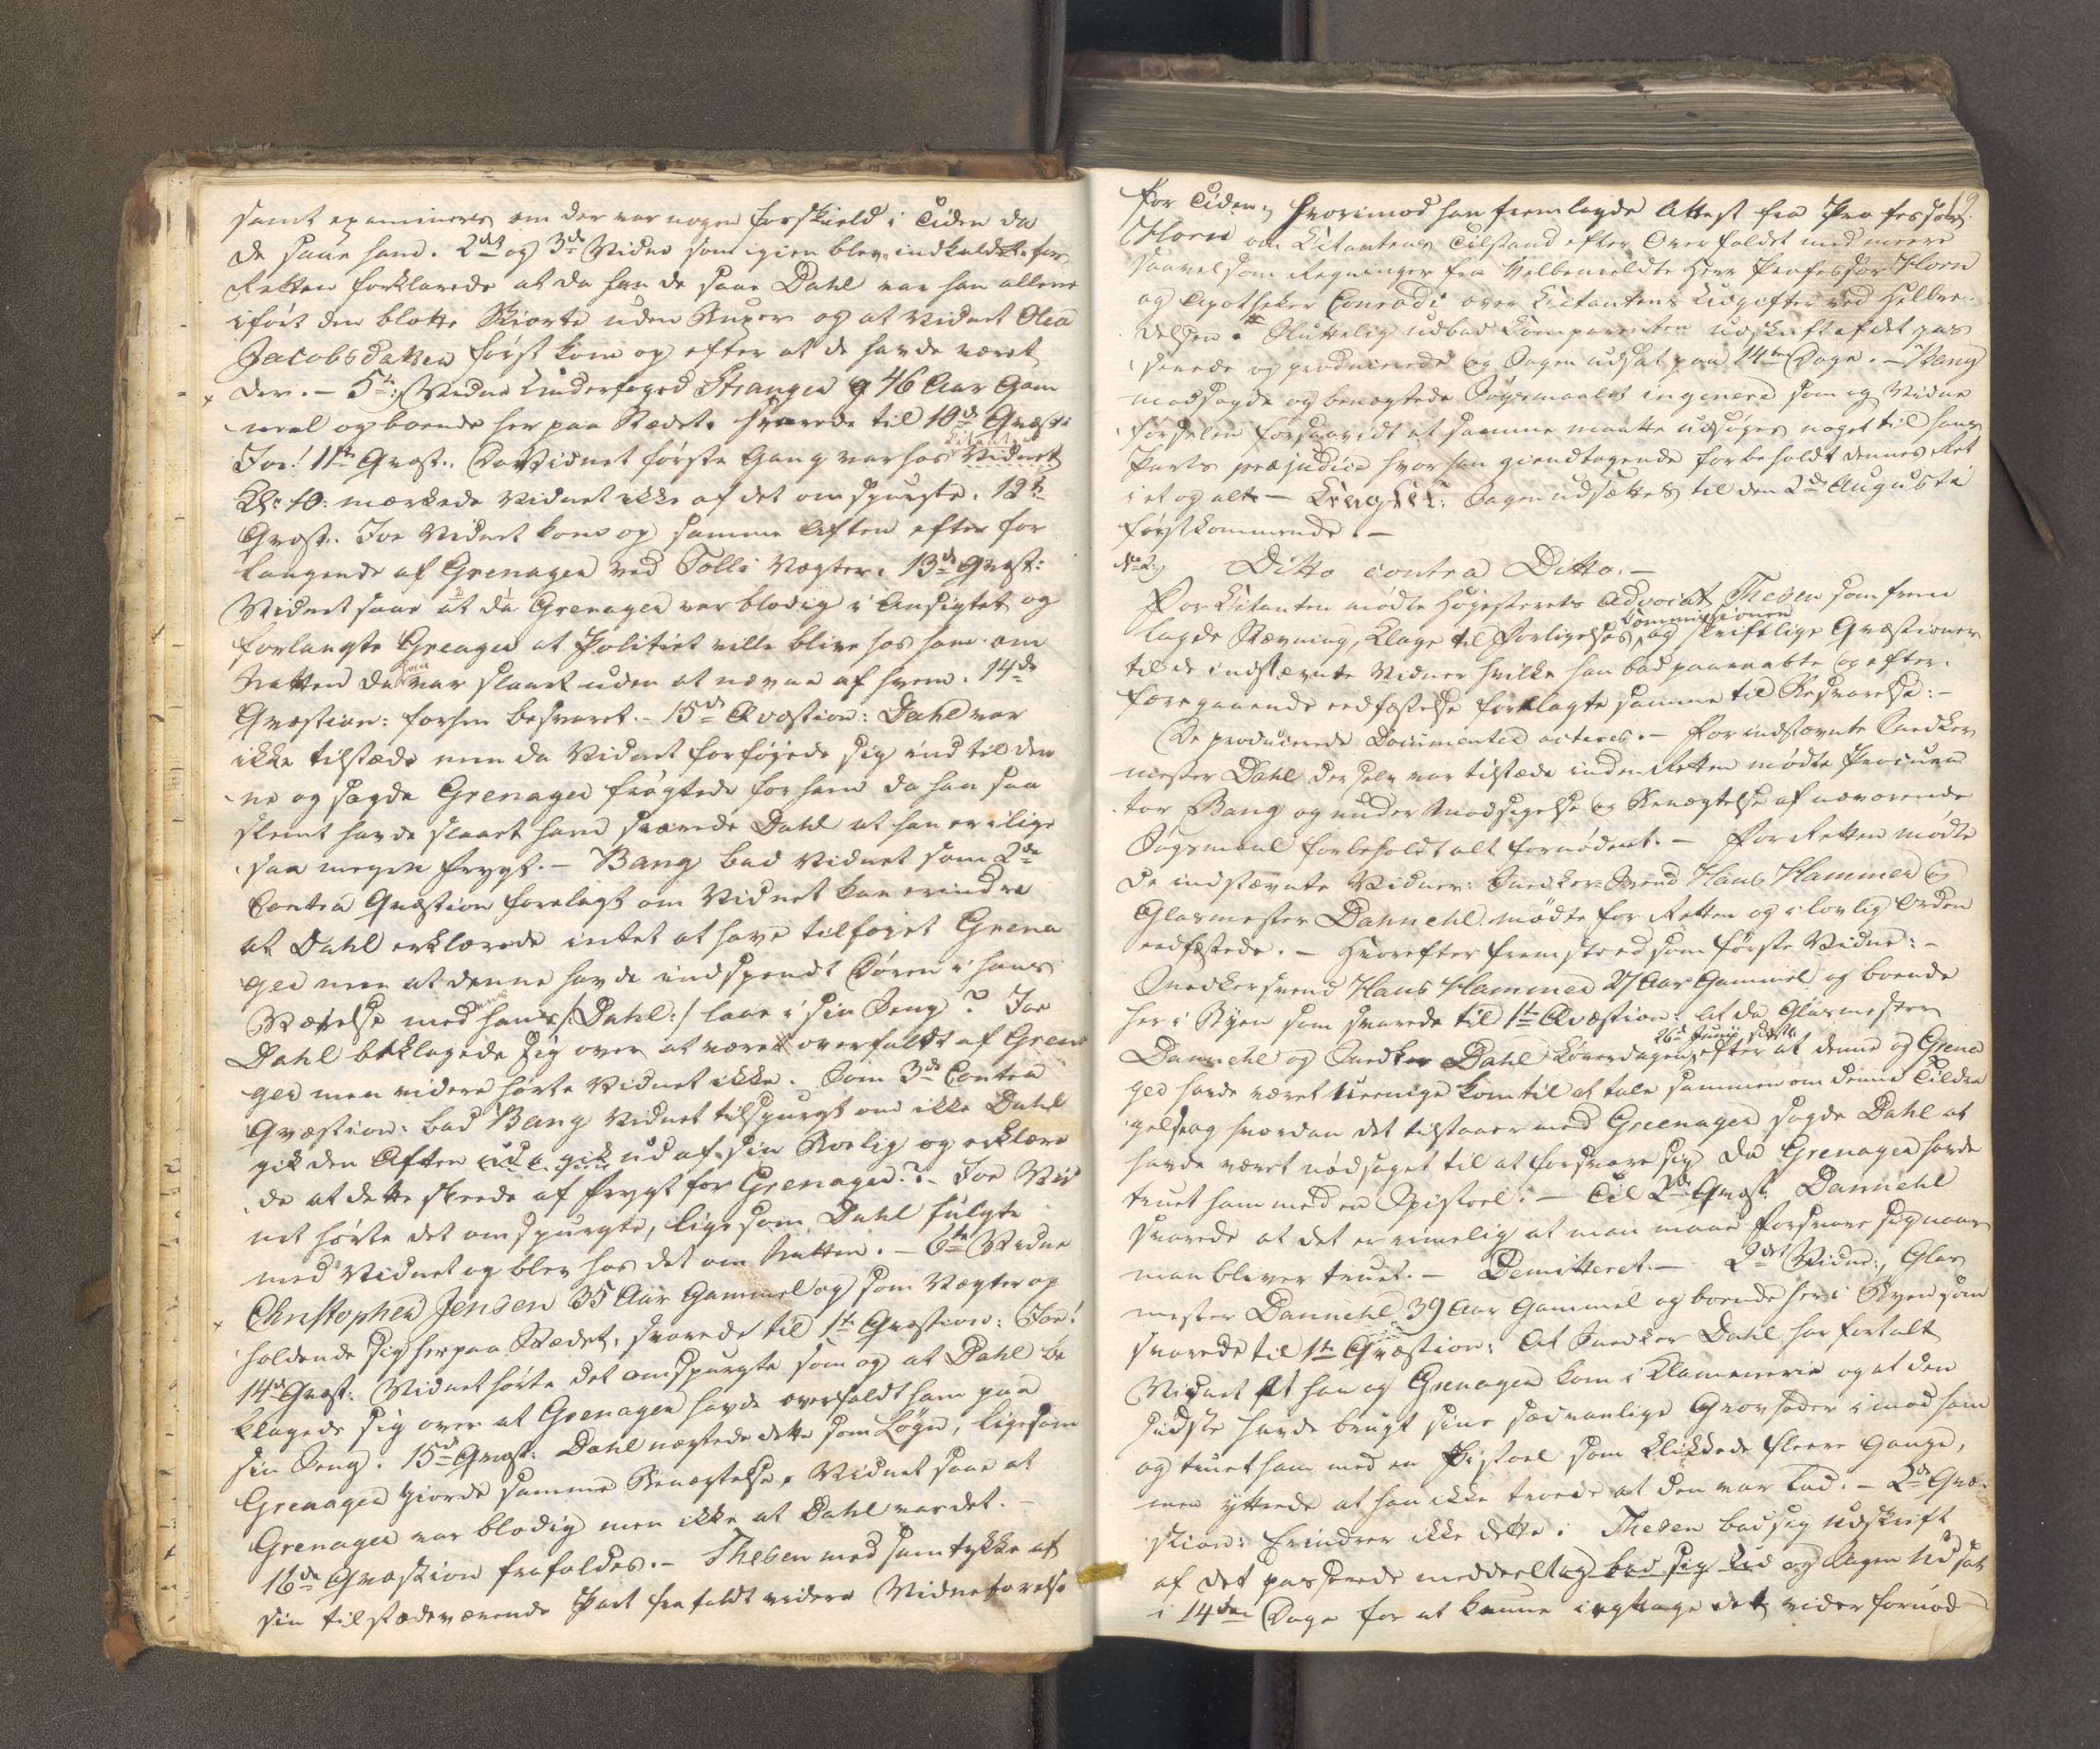 samt examineres om der var nogen forskield i Tiden da
de saae ham. 2det og 3de Vidne som igien blev indkaldt for
Retten forklarede at da han de saae Dahl var han allene
iført den blotte Skiorte uden Buxer og at Vidnet Olea
Jacobsdatter først kom op efter at de havde været
der. - 5te Vidne Underfoged Stranger 46 Aar Gam
mel og boende her paa Stædet. svarede til 10de Qvæst:
Joe! 11te Qvæst: Da Vidnet første Gang var hos Citanten
Kl: 10: mærkede Vidnet ikke af det omspurgte. 12te
Qvæst: Joe Vidnet kom op samme Aften efter for
langende af Grenager ved Vægter. 13de Qvæst:
Vidnet saae at da Grenager var blodig i Ansigtet og
forlangte Grenager at Politiet ville blive hos ham om
Natten da han var slaaet uden at nævne af hvem. 14de
Qvæstion: forhen besvaret. - 15de Qvæstion: Dahl var
ikke tilstæde men da Vidnet forføjede sig ind til den
ne og sagde Grenager frøgtede for ham da han saa
slemt havde slaaet ham svarede Dahl at han er i lige
saa megen frygt. - Bang bad Vidnet som 2de
Contra Qvæstion forelagt om Vidnet kan erindre
at Dahl erklærede intet at have tilføiet Grena
ger men at denne havde indspændt Døren i hans
Værelse mens han /: Dahl :/ laae i sin Seng? Joe
Dahl beklagede sig over at været overfaldt af Grena
ger men videre hørte Vidnet ikke. Som 3de Contra
Qvæstion: bad Bang Vidnet tilspurgt om ikke Dahl
gik den Aften ud af sin Boelig og erklære
de at dette skeede af frygt for Grenager.? - Joe Vid
net hørte det omspurgte, ligesom Dahl fulgte
med Vidnet og blev hos det om Natten. - 6te Vidne
Christopher Jensen 35 Aar Gammel og som Vægter op
holdende sig her paa Stædet, svarede til 1te Qvæstion: Joe!
14de Qvæst: Vidnet hørte det omspurgte som og at Dahl be
klagede sig over at Grenager havde overfaldt ham paa
sin Seng. 15de Qvæst: Dahl nægtede dette som Løgn, ligesom
Grenager giorde samme Benægtelse, Vidnet saae at
Grenager var blodig men ikke at Dahl var det. -
16de Qvæstion frafaldes. - Thesen med samtykke af
sin tilstædeværende Part frafaldt videre Vidneførelse
19
for Tiden, hvorimod han fremlagde Attest fra Professor
Horn om Citantens Tilstand efter Overfaldet med meere
saavelsom Regninger fra Velbemeldte Herr Professor Horn
og Apotheker Conradi over Citantens Udgifter ved Helbre
delsen. Sluttelig udbad Comparenten udskrift af det pas
serede og producerede og Sagen udsat paa 14ten Dage. - Bang
modsagde og benægtede Søgsmaalet in genere som og Vidne
førselen forsaavidt at samme maatte udsøges noget til hans
Parts præjudice hvor han giendtagende forbeholdt dennes Ret
i et og alt - Eragtet: Sagen udsættes til den 2de Augusti
førstkommende. -
No 2. Ditto contra Ditto. -
For Citanten mødte Højesterets Advocat Thesen som frem
lagde Stævning, Klage til Forligelses Commissionen og skriftlige Qvæstioner
til de indstævnte Vidner hvilke han bad paaraabte og efter
foregaaende eedfæstelse forelagte samme til Besvarelse: -
De producerede Documenter acteres. - For indstævnte Snedker
mester Dahl der selv var tilstæde inden Retten mødte Procura
tor Bang og under Modsigelse og Benægtelse af nærværende
Søgsmaal forbeholdt alt fornødent. - For Retten mødte
de indstævnte Vidner: Snedker-Svend Hans Hammer og
Glarmester Dannehl mødte for Retten og i lovlig Orden
eedfæstede. - Hvorefter fremstoed som første Vidne: -
Snedkersvend Hans Hammer 27 Aar Gammel og boende
her i Byen som svarede til 1te Qvæstion: at da Glarmester
Dannehl og Snedker Dahl 26de Junij sidste efter at denne og Grena
ger havde været ueenige kom til at tale sammen om denne Tildra
gelse og hvordan det tilstaaer med Grenager sagde Dahl at
havde været nødsaget til at forsvare sig da Grenager havde
truet ham med en Pistoel. - Til 2de Qvæst: Dannehl
svarede at det er rimelig at man maae forsvare sig naar
man bliver truet. - Demitteret. - 2det Vidne, Glar
mester Dannehl 39 Aar Gammel og boende her i Byen som
svarede til 1te Qvæstion: At Snedker Dahl har fortalt
Vidnet At han og Grenager kom i Klammerie og at den
sidste havde brugt sine sædvanlige Grovheder imod ham
og truet ham med en Pistoel som klikkede fleere Gange,
men yttrede at han ikke troede at den var lad. - 2de Qvæ
stion: Erindrer ikke dette. Thesen bad sig udskrift
af det passerede meddeelt og bad sig Tid og Sagen udsat
i 14ten Dage for at kunne iagttage det videre fornød